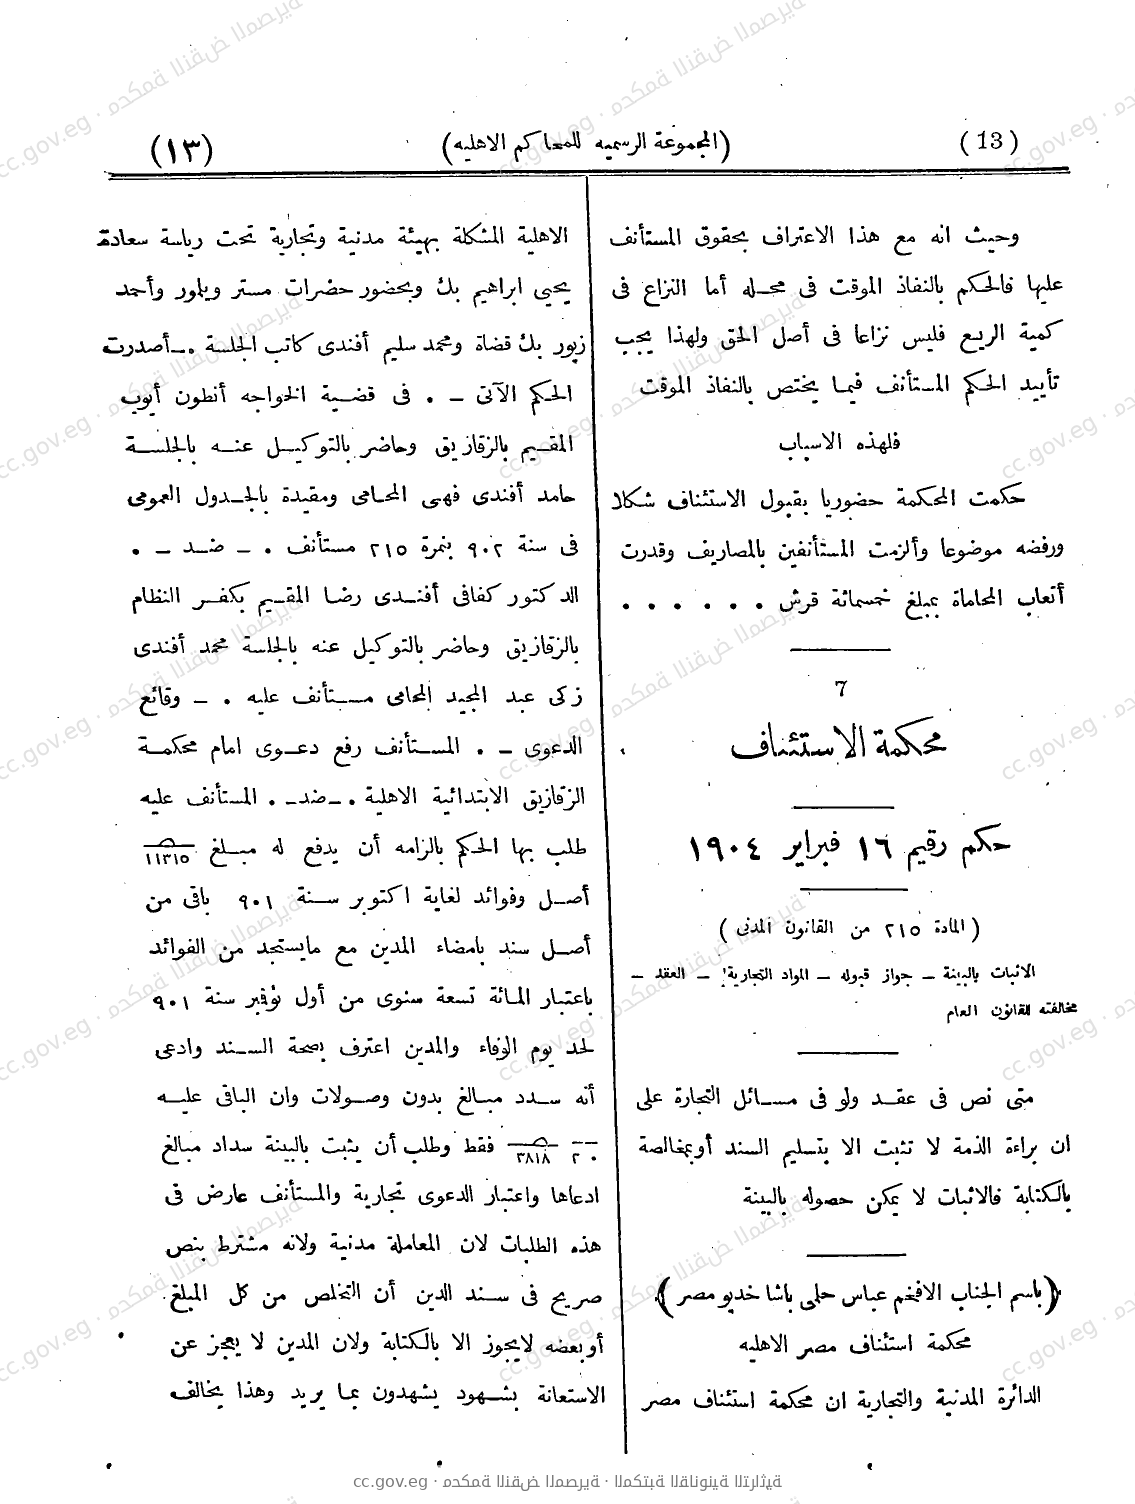 (13) (المجموعة الرسميه للمحاكم الاهليه) (١٣)
وحيث انه مع هذا الاعتراف بحقوق المستأنف
عليها فالحكم بالنفاذ الموقت فى محله أما النزاع فى
كمية الريع فليس نزاعا فى أصل الحق ولهذا يجب
تأييد الحكم المستأنف فيما يختص بالنفاذ الموقت
فلهذه الاسباب
حكمت المحكمة حضوريا بقبول الاستئناف شكلا
ورفضه موضوعا وألزمت المستأنفين بالمصاريف وقدرت
أتعاب المحاماة بمبلغ خمسمائة قرش . . . . . .
7
محكمة الاستئناف
حكم رقيم ١٦ فبراير ١٩٠٤
(المادة ٢١٥ من القانون المدنى)
الاثبات بالبينة — جواز قبوله — المواد التجارية — العقد —
مخالفته للقانون العام
متى نص فى عقد ولو فى مسائل التجارة على
ان براءة الذمة لا تثبت الا بتسليم السند أو بمخالصة
بالكتابة فالاثبات لا يمكن حصوله بالبينة
(باسم الجناب الافخم عباس حلمى باشا خديو مصر)
محكمة استئناف مصر الاهليه
الدائرة المدنية والتجارية ان محكمة استئناف مصر
الاهلية المشكلة بهيئة مدنية وتجارية تحت رياسة سعادة
يحيى ابراهيم بك وبحضور حضرات مستر ويلمور وأحمد
زيور بك قضاة ومحمد سليم أفندى كاتب الجلسة .—أصدرت
الحكم الآتى — . فى قضية الخواجه أنطون أيوب
المقيم بالزقازيق وحاضر بالتوكيل عنه بالجلسة
حامد أفندى فهمى المحامى ومقيدة بالجدول العمومى
فى سنة ٩٠٢ بنمرة ٢١٥ مستأنف . — ضد — .
الدكتور كفافى أفندى رضا المقيم بكفر النظام
بالزقازيق وحاضر بالتوكيل عنه بالجلسة محمد أفندى
زكى عبد المجيد المحامى مستأنف عليه . — وقائع
الدعوى — . المستأنف رفع دعوى امام محكمة
الزقازيق الابتدائية الاهلية .—ضد— . المستأنف عليه
طلب بها الحكم بالزامه أن يدفع له مبلغ ١١٣١٥
أصل وفوائد لغاية اكتوبر سنة ٩٠١ باقى من
أصل سند بامضاء المدين مع مايستجد من الفوائد
باعتبار المائة تسعة سنوى من أول نوفمبر سنة ٩٠١
لحد يوم الوفاء والمدين اعترف بصحة السند وادعى
أنه سدد مبالغ بدون وصولات وان الباقى عليه
٢٠ ٣٨١٨ فقط وطلب أن يثبت بالبينة سداد مبالغ
ادعاها واعتبار الدعوى تجارية والمستأنف عارض فى
هذه الطلبات لان المعاملة مدنية ولانه مشترط بنص
صريح فى سند الدين أن التخلص من كل المبلغ
أو بعضه لايجوز الا بالكتابة ولان المدين لا يعجز عن
الاستعانة بشهود يشهدون بما يريد وهذا يخالف
cc.gov.eg · محكمة النقض المصرية · المكتبة القانونية التراثية